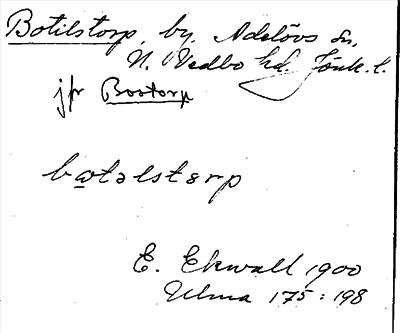 Botilstorp, by, Adelövs sn,
N. Vedbo hd. Jönk. l.
jfr Bostorp
bɷtəlstɛrp
E. Ekwall 1900
Ulma 175:198